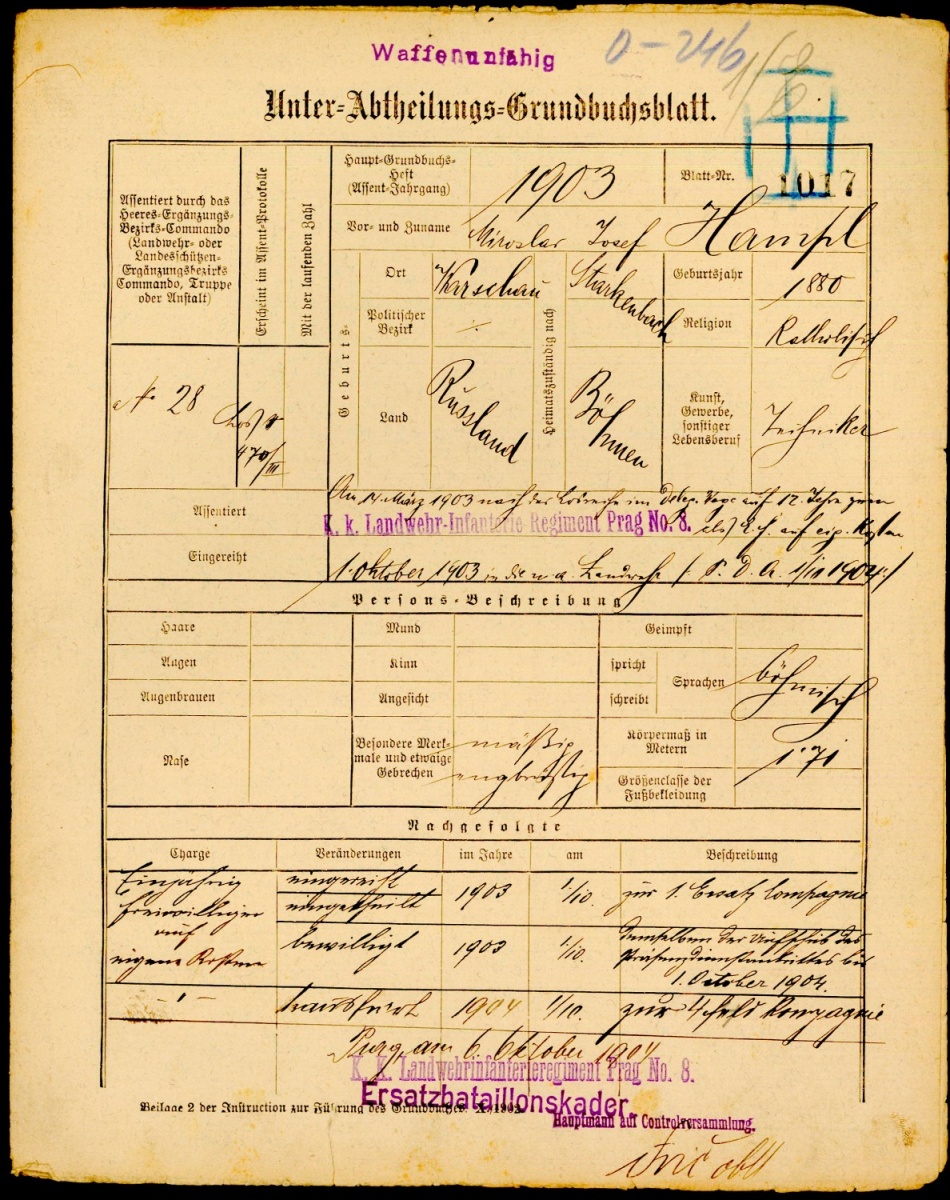 Waffenunfähig
0-246
Unter-Abtheilungs-Grundbuchsblatt.
Assentiert durch das
Heeres-Ergänzungs-
Bezirks-Commando
(Landwehr- oder
Landesschützen-
Ergänzungsbezirks
Commando, Truppe
oder Anstalt)
Erscheint im Assent-Protokolle
Mit der laufenden Zahl
Haupt-Grundbuchs-
Heft
(Assent-Jahrgang)
1903
Blatt-Nr.
1017
Vor- und Zuname
Miroslav Josef Hampl
Geburts-
Ort
Warschau
Heimatszuständig nach
Starkenbach
Geburtsjahr
1880
Politischer
Bezirk
Religion
Katholisch
Land
Russland
Böhmen
Kunst,
Gewerbe,
sonstiger
Lebensberuf
Techniker
No 28
470/III
Assentiert
Am 14. März 1903 nach der auf 12. Jahre zum
K. k. Landwehr-Infanterie Regiment Prag No. 8.
als E. F. auf eig. Kosten
Eingereiht
1. Oktober 1903 in die Landwehr (P. D. A. 1/10 1904.)
Persons-Beschreibung
Haare
Mund
Geimpft
Augen
Kinn
spricht
Sprachen
böhmisch
Augenbrauen
Angesicht
schreibt
Nase
Besondere Merk-
male und etwaige
Gebrechen
mäßig
engbrüstig
Körpermaß in
Metern
1.71
Größenclasse der
Fußbekleidung
Nachgefolgte
Charge
Veränderungen
im Jahre
am
Beschreibung
Einjährig
freiwilliger
auf
eigene Kosten
eingereiht
eingetheilt
1903
1/10.
zur 1. Ersatz Compagnie
bewilligt
1903
1/10.
demselben der Aufschub des
Präsenzdienstantrittes bis
1. October 1904.
-"-
transferirt
1904
1/10.
zur 4 Feld Kompagnie
Prag, am 6. Oktober 1904
K. K. Landwehrinfanterieregiment Prag No. 8.
Ersatzbataillonskader.
Beilage 2 der Instruction zur Führung des Grundbuches.
Hauptmann auf Controlversammlung.